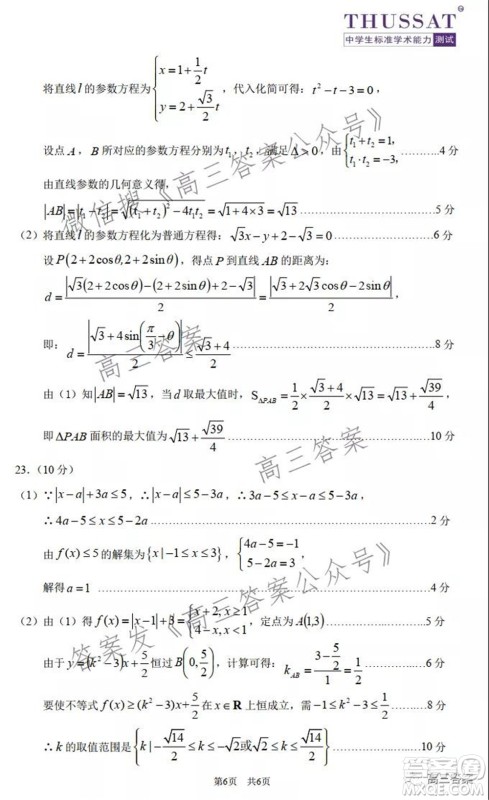 THUSSAT
中学生标准学术能力测试
将直线 l 的参数方程为 { x=1+\frac{1}{2}t, y=2+\frac{\sqrt{3}}{2}t ，代入化简可得：t²-t-3=0，
设点 A，B 所对应的参数方程分别为 t₁，t₂，满足 Δ>0，由 { t₁+t₂=1, t₁·t₂=-3, ……………4分
由直线参数的几何意义得，
|AB|=|t₁-t₂|=√((t₁+t₂)²-4t₁t₂)=√(1+4×3)=√13 ……………5分
（2）将直线 l 的参数方程化为普通方程得：√3x-y+2-√3=0 ……………6分
设 P(2+2cosθ,2+2sinθ)，得点 P 到直线 AB 的距离为：
d=\frac{|√3(2+2cosθ)-(2+2sinθ)+2-√3|}{2}=\frac{|√3+2√3cosθ-2sinθ|}{2}，
即：d=\frac{|√3+4sin(\frac{π}{3}-θ)|}{2}≤\frac{√3+4}{2} ……………8分
由（1）知 |AB|=√13，当 d 取最大值时，S_{ΔPAB}=\frac{1}{2}×\frac{√3+4}{2}×√13=√13+\frac{√39}{4}，
即 ΔPAB 面积的最大值为 √13+\frac{√39}{4} ……………10分
23.（10分）
（1）∵|x-a|+3a≤5，∴|x-a|≤5-3a，∴3a-5≤x-a≤5-3a，
∴4a-5≤x≤5-2a ……………2分
由 f(x)≤5 的解集为 {x|-1≤x≤3}，{ 4a-5=-1, 5-2a=3，
解得 a=1 ……………4分
（2）由（1）得 f(x)=|x-1|+3={ x+2, x≥1, 4-x, x<1，定点为 A(1,3)
由于 y=(k²-3)x+\frac{5}{2} 恒过 B(0,\frac{5}{2})，计算可得：k_{AB}=\frac{3-\frac{5}{2}}{1}=\frac{1}{2} ……………6分
要使不等式 f(x)≥(k²-3)x+\frac{5}{2} 在 x∈R 上恒成立，需 -1≤k²-3≤\frac{1}{2} ……………8分
∴k 的取值范围是 {k|-\frac{√14}{2}≤k≤-√2或√2≤k≤\frac{√14}{2}} ……………10分
第6页 共6页
微信搜《高三答案公众号》
高三答案
高三答案
答案发《高三答案公众号》
高三答案